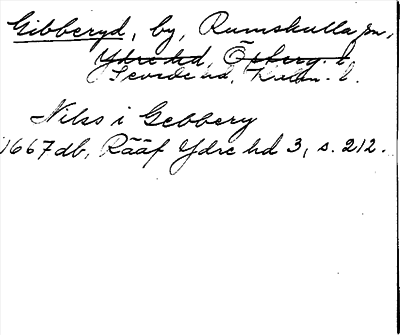 Gibberyd, by, Rumskulla sn,
Ydre hd, Österg. l.
Sevede hd, Kalm. l.
Nilss i Gebbery
1667 db, Rääf Ydre hd 3, s. 212.